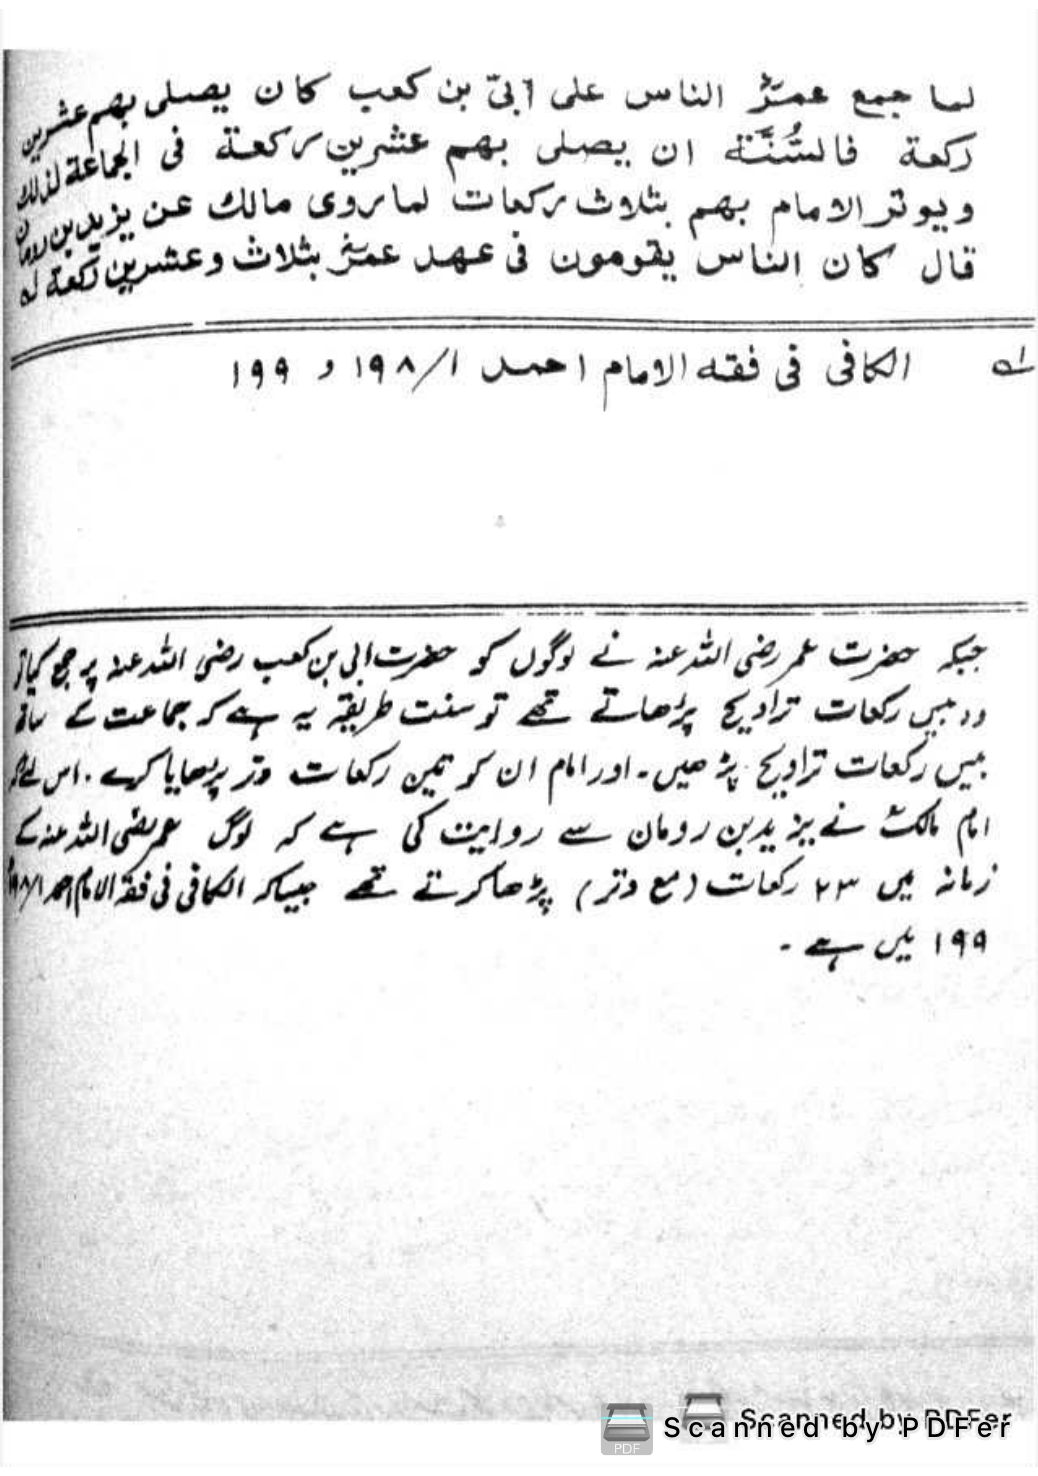 لما جمع عمرؓ الناس علی أبیّ بن کعب کان یصلی بهم عشرین
رکعة فالسُّنَّة ان یصلی بهم عشرین رکعة فی الجماعة لذلك
ویوتر الامام بهم بثلاث رکعات لما روی مالك عن یزید بن رومان
قال کان الناس یقومون فی عهد عمرؓ بثلاث وعشرین رکعة لہ
لہ الکافی فی فقه الامام احمد ۱/۱۹۸ و ۱۹۹
جبکہ حضرت عمر رضی اللہ عنہ نے لوگوں کو حضرت ابی بن کعب رضی اللہ عنہ پر جمع کیا تو
وہ بیس رکعات تراویح پڑھاتے تھے تو سنت طریقہ یہ ہے کہ جماعت کے ساتھ
بیس رکعات تراویح پڑھیں۔ اور امام ان کو تین رکعات وتر پڑھایا کرے۔ اس لئے کہ
امام مالکؒ نے یزید بن رومان سے روایت کی ہے کہ لوگ عمر رضی اللہ عنہ کے
زمانہ میں ۲۳ رکعات (مع وتر) پڑھا کرتے تھے جیسا کہ الکافی فی فقہ الامام احمد ۱/۱۹۸و
۱۹۹ میں ہے۔
Scanned by PDFer
Scanned by PDFer
PDF